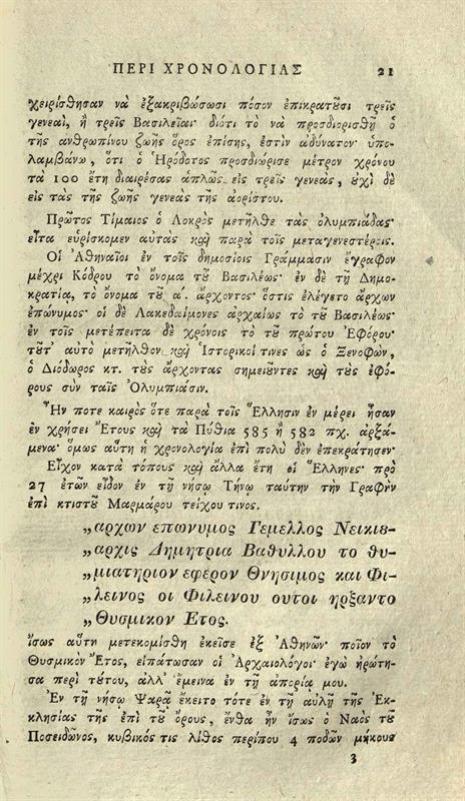 ΠΕΡΙ ΧΡΟΝΟΛΟΓΙΑΣ 21
χειρίσθησαν νὰ ἐξακριβώσωσι πόσον ἐπικρατοῦσι τρεῖς
γενεαὶ, ἢ τρεῖς Βασιλεῖαι· διότι τὸ νὰ προσδιορισθῇ ὁ
τῆς ἀνθρωπίνου ζωῆς ὅρος ἐπίσης, ἐστὶν ἀδύνατον· ὑπο-
λαμβάνω, ὅτι ὁ Ἡρόδοτος προσδιώρισε μέτρον χρόνου
τὰ 100 ἔτη διαιρέσας ἁπλῶς εἰς τρεῖς γενεὰς, οὐχὶ δὲ
εἰς τὰς τῆς ζωῆς γενεὰς τῆς ἀορίστου.
Πρῶτος Τίμαιος ὁ Λοκρὸς μετῆλθε τὰς ὀλυμπιάδας·
εἶτα εὑρίσκομεν αὐτὰς καὶ παρὰ τοῖς μεταγενεστέροις.
Οἱ Ἀθηναῖοι ἐν τοῖς δημοσίοις Γράμμασιν ἔγραφον
μέχρι Κόδρου τὸ ὄνομα τοῦ Βασιλέως· ἐν δὲ τῇ Δημο-
κρατίᾳ, τὸ ὄνομα τοῦ α΄. ἄρχοντος· ὅστις ἐλέγετο ἄρχων
ἐπώνυμος· οἱ δὲ Λακεδαίμονες ἀρχαίως τὸ τοῦ Βασιλέως·
ἐν τοῖς μετέπειτα δὲ χρόνοις τὸ τοῦ πρώτου Ἐφόρου·
τοῦτ' αὐτὸ μετῆλθον καὶ Ἱστορικοί τινες ὡς ὁ Ξενοφῶν,
ὁ Διόδωρος κτ. τοὺς ἄρχοντας σημειοῦντες καὶ τοὺς ἐφό-
ρους σὺν ταῖς Ὀλυμπιάσιν.
Ἦν ποτε καιρὸς ὅτε παρὰ τοῖς Ἕλλησιν ἐν μέρει ἦσαν
ἐν χρήσει Ἔτους καὶ τὰ Πύθια 585 ἢ 582 πχ. ἀρξά-
μενα· ὅμως αὕτη ἡ χρονολογία ἐπὶ πολὺ δὲν ἐπεκράτησεν·
Εἶχον κατὰ τόπους καὶ ἄλλα ἔτη οἱ Ἕλληνες· πρὸ
27 ἐτῶν εἶδον ἐν τῇ νήσῳ Τήνῳ ταύτην τὴν Γραφὴν
ἐπὶ κτιστοῦ Μαρμάρου τείχου τινος.
„αρχων επωνυμος Γεμελλος Νεικιου-
„αρχις Δημητρια Βαθυλλου το θυ-
„μιατηριον εφερον Θνησιμος και Φι-
„λεινος οι Φιλεινου ουτοι ηρξαντο
„Θυσμικον Ετος.
ἴσως αὕτη μετεκομίσθη ἐκεῖσε ἐξ Ἀθηνῶν· ποῖον τὸ
Θυσμικὸν Ἔτος, εἰπάτωσαν οἱ Ἀρχαιολόγοι· ἐγὼ ἠρώτη-
σα περὶ τούτου, ἀλλ' ἔμεινα ἐν τῇ ἀπορίᾳ μου.
Ἐν τῇ νήσῳ Ψαρᾷ ἔκειτο τότε ἐν τῇ αὐλῇ τῆς Ἐκ-
κλησίας τῆς ἐπὶ τοῦ ὄρους, ἔνθα ἦν ἴσως ὁ Ναὸς τοῦ
Ποσειδῶνος, κυβικός τις λίθος περίπου 4 ποδῶν μήκους
3